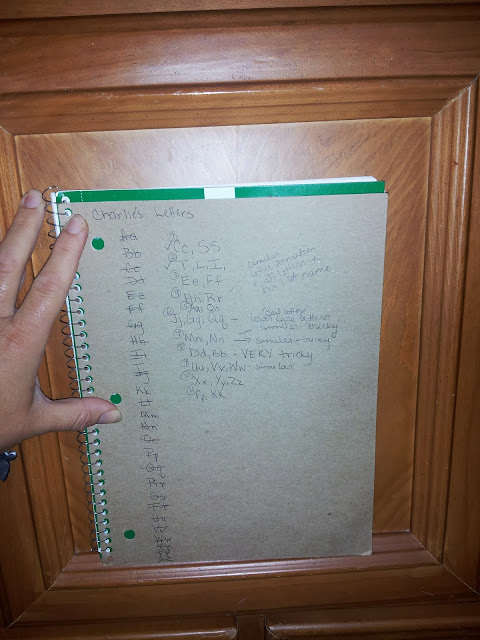 Charlie's Letters
Aa
Bb
Cc
Dd
Ee
Ff
Gg
Hh
Ii
Jj
Kk
Ll
Mm
Nn
Oo
Pp
Qq
Rr
Ss
Tt
① ✓Cc, SS
② ✓T, L, I,
③ Ee, Ff
④ Hh, Rr
⑤ Aa, Oo
⑥ Jj, Gg, Qq - lower case letters
similar tricky
⑦ Mm, Nn → similar - tricky
⑧ Dd, Bb - VERY tricky
⑨ Uu, Vv, Ww - similar
⑩ Xx, Yy, Zz
⑪ Pp, Kk
similar
letter formation
name